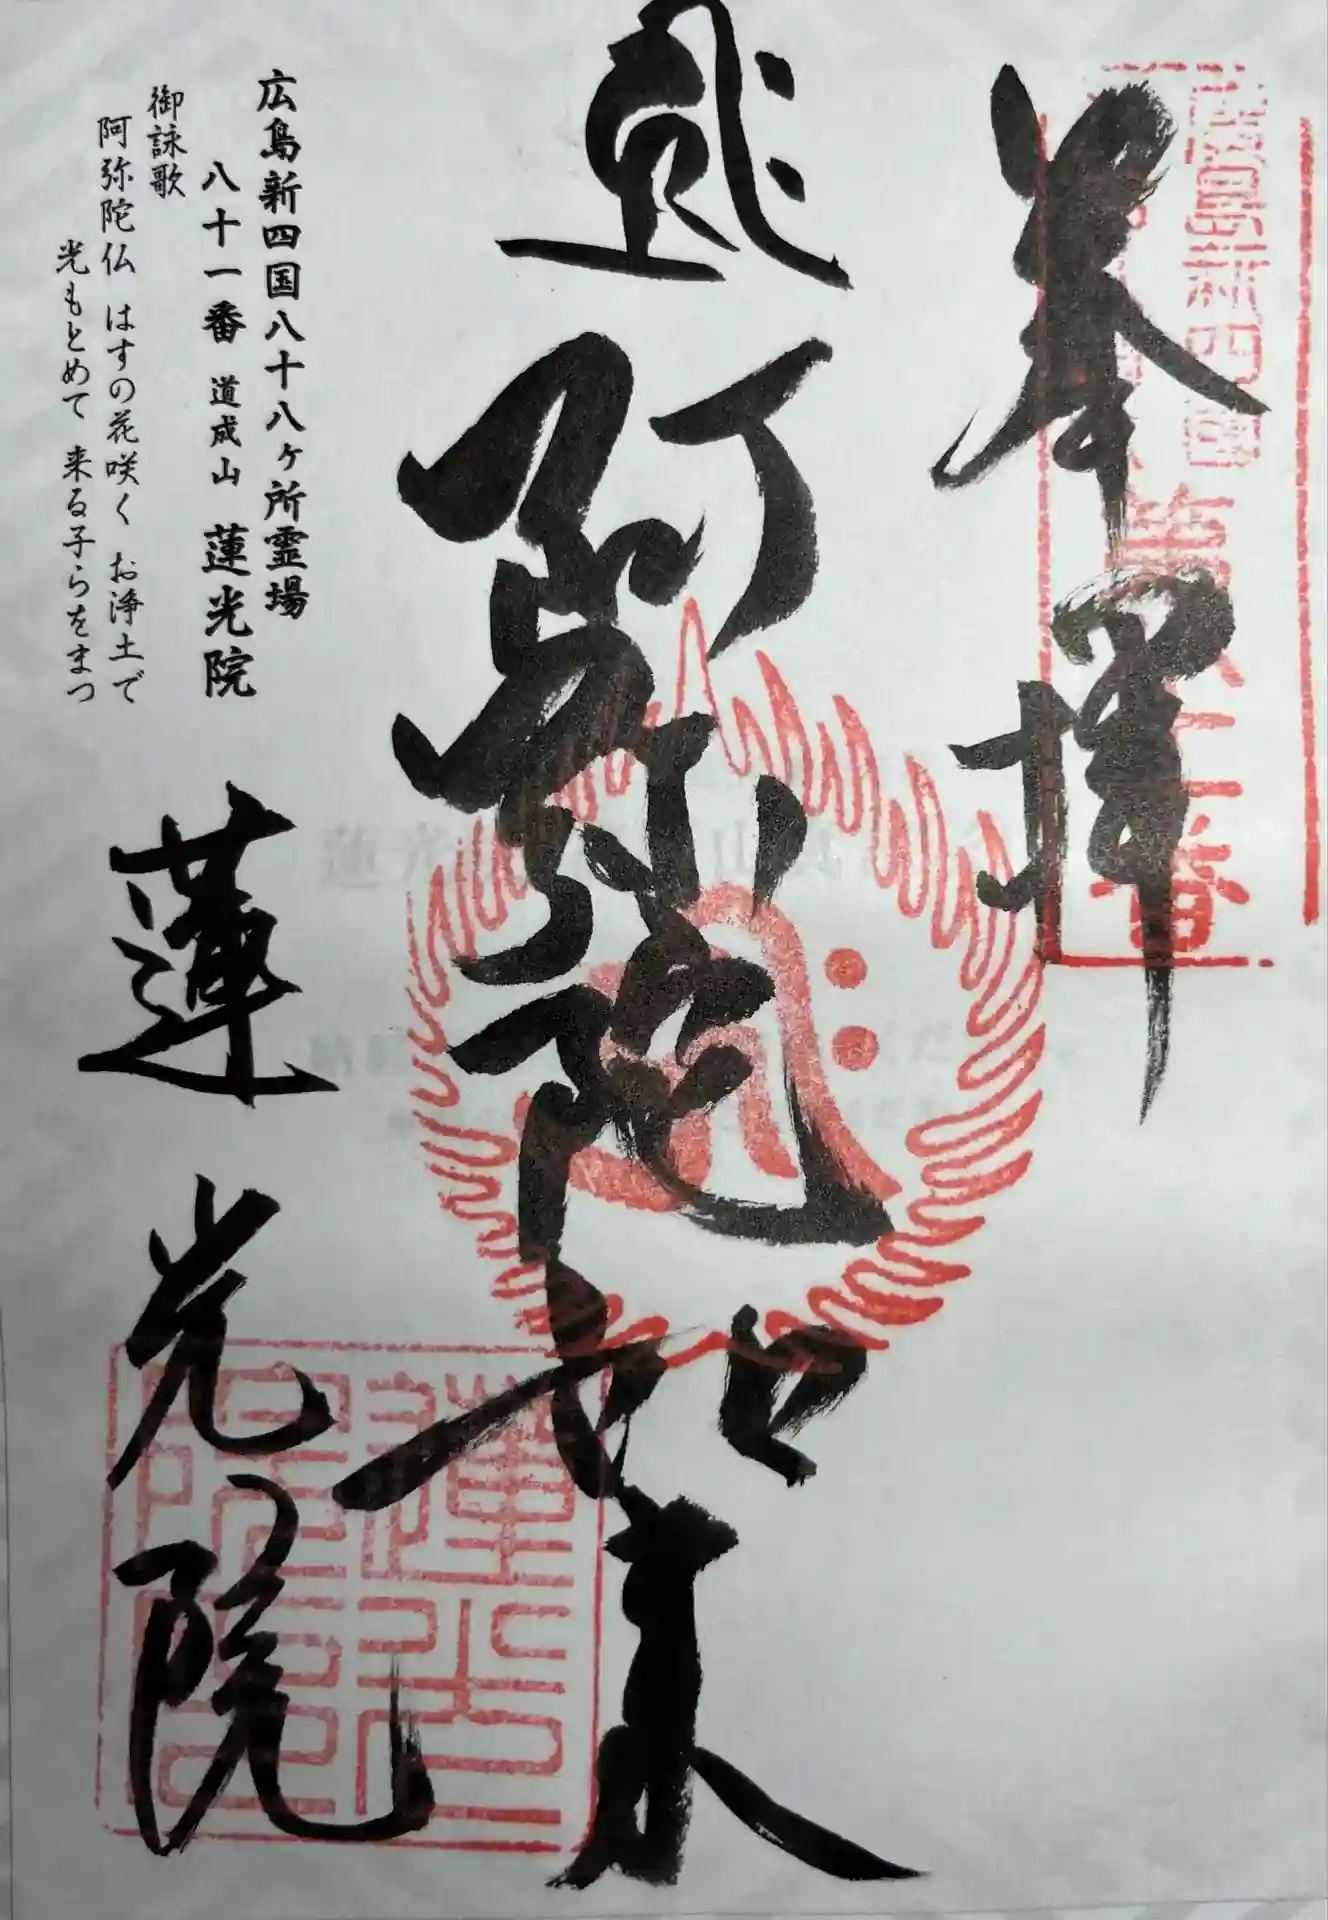 奉拝
廣島新四国第八十一番
阿弥陀如来
蓮光院
蓮光院
広島新四国八十八ヶ所霊場
八十一番 道成山 蓮光院
御詠歌
阿弥陀仏 はすの花咲く お浄土で
光もとめて 来る子らをまつ